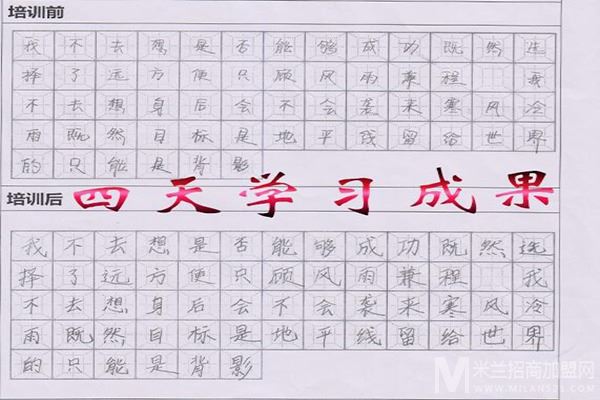 培训前
我不去想是否能够成功既然选
择了远方便只顾风雨兼程 我
不去想身后会不会袭来寒风冷
雨既然目标是地平线留给世界
的只能是背影
四天学习成果
培训后
我不去想是否能够成功既然选
择了远方便只顾风雨兼程 我
不去想身后会不会袭来寒风冷
雨既然目标是地平线留给世界
的只能是背影
米兰招商加盟网